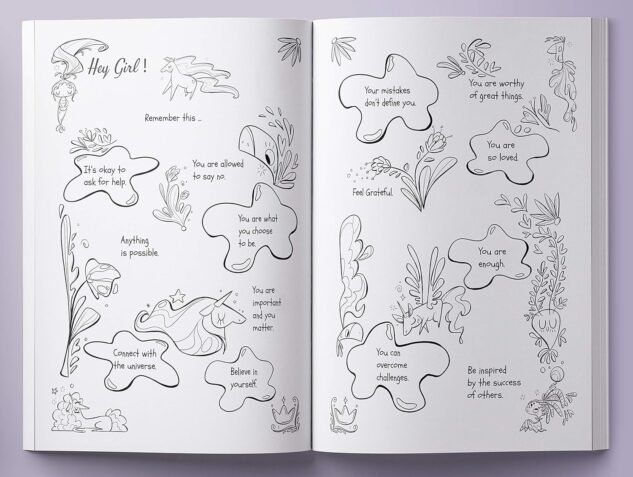 Hey Girl !
Remember this ...
It's okay to
ask for help.
You are allowed
to say no.
You are what
you choose
to be.
Anything
is possible.
You are
important
and you
matter.
Connect with
the universe.
Believe in
yourself.
Your mistakes
don't define you.
You are worthy
of great things.
You are
so loved.
Feel Grateful.
You are
enough.
You can
overcome
challenges.
Be inspired
by the success
of others.